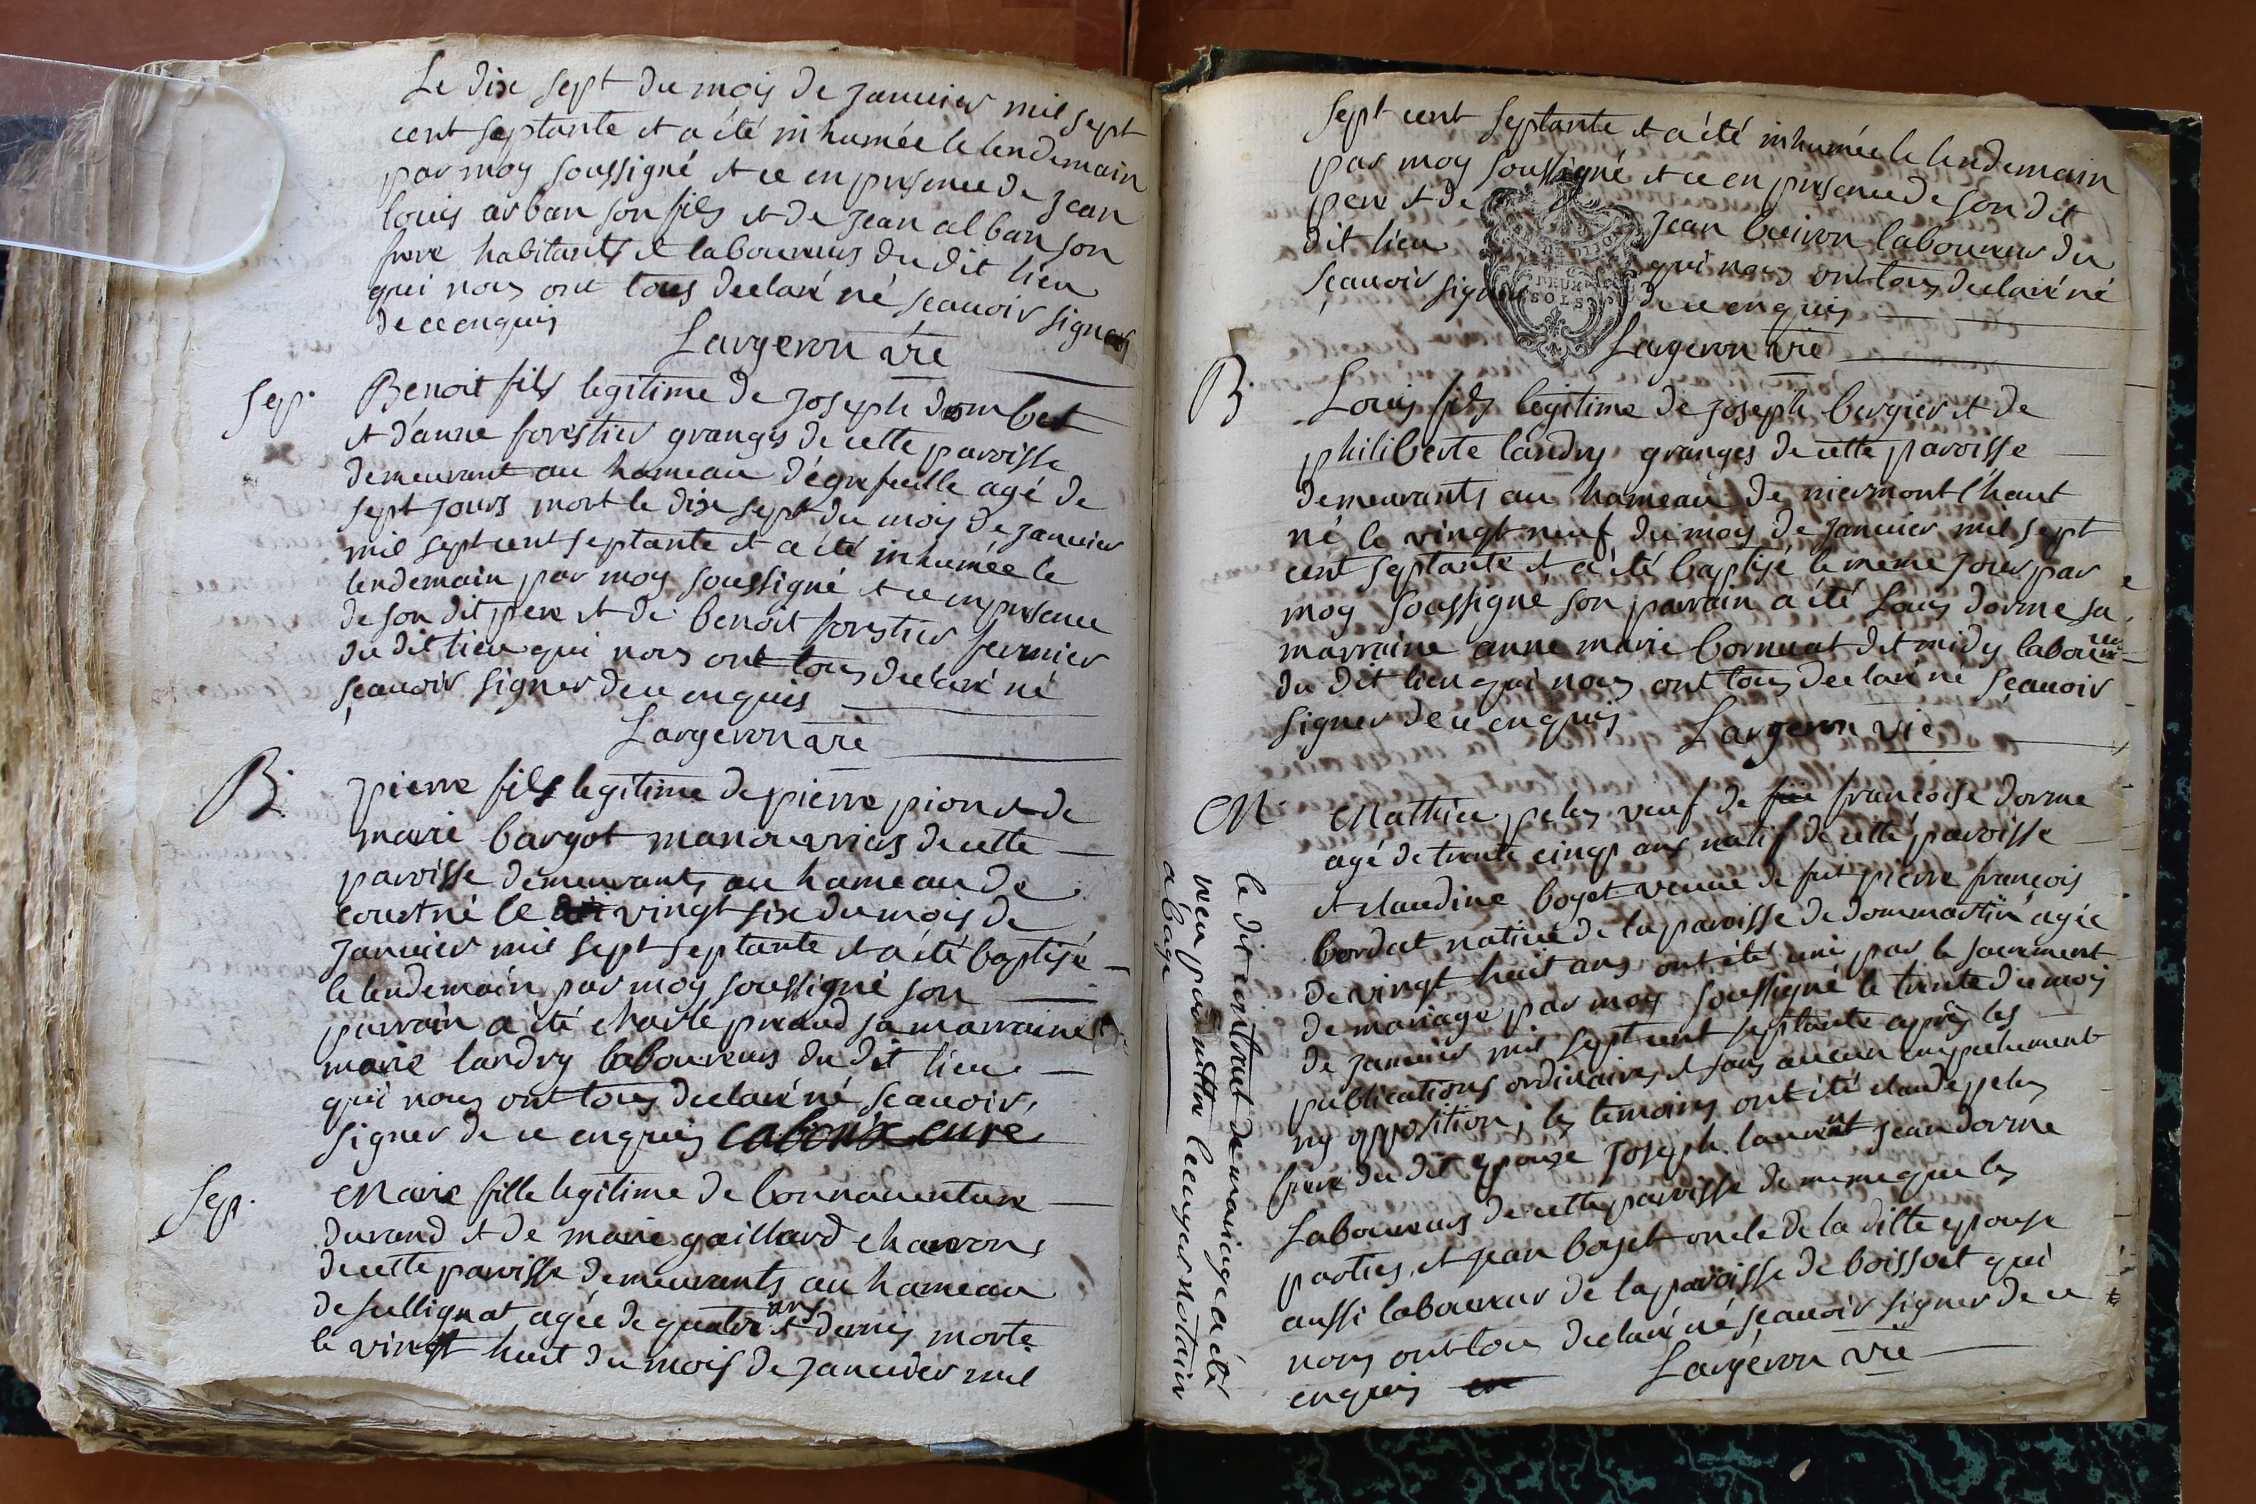 Le dix sept du mois de januier mil sept
cent septante et a été inhumée le lendemain
par moy soussigné et ce en presence de jean
louis arban son fils et de jean alban son
frere habitants et laboureurs du dit lieu
qui nous ont tous declaré né sçauoir signer
de ce enquis
Largeron vié
Sep. Benoit fils legitime de joseph dombet
et d'anne forestier grangers de cette paroisse
demeurant au hameau d'égrefeuille agé de
sept jours mort le dix sept du mois de januier
mil sept cent septante et a été inhumée le
lendemain par moy soussigné et ce en presence
de son dit pere et de benoit forestier fermier
du dit lieu qui nous ont tous declaré né
sçauoir signer de ce enquis
Largeron vié
B. pierre fils legitime de pierre pion et de
marie bargot manouvriers de cette
paroisse demeurants au hameau de
court né le vingt six du mois de
januier mil sept septante et a été baptisé
le lendemain par moy soussigné son
parrain a été charle preaud sa marraine
marie landry laboureurs du dit lieu
qui nous ont tous declaré né sçauoir
signer de ce enquis curé
Sep. Marie fille legitime de bonnauenture
durand et de marie gaillard charrons
de cette paroisse demeurants au hameau
de sullignat agée de quatre ans et demis morte
le vingt huit du mois de januier mil
sept cent septante et a été inhumée le lendemain
par moy soussigné et ce en presence de son dit
pere et de jean buiron laboureur du
dit lieu qui nous ont tous declaré né
sçauoir signer de ce enquis
DEUX SOLS
Largeron vié
B. Louis fils legitime de joseph bergier et de
philiberte landry granges de cette paroisse
demeurants au hameau de niermont lhaut
né le vingt neuf du mois de januier mil sept
cent septante et a été baptisé le meme jour par
moy soussigné son parrain a été Louis dorme sa
marraine anne marie bornuat dit midy laboureurs
du dit lieu qui nous ont tous declaré né sçauoir
signer de ce enquis Largeron vié
M. Mathieu pelus veuf de françoise dorme
agé de trente cinq ans natif de cette paroisse
et claudine boyet veuue de fut pierre françois
bordat natiue de la paroisse de dommartin agée
de vingt huit ans ont été uni par le sacrement
de mariage par moy soussigné le trente du mois
de januier mil sept cent septante après les
publications ordinaires et sans aucun empechement
ny opposition, les temoins ont été claude pelus
frere du dit epoux joseph laurent jean dorme
Laboureurs de cette paroisse de meme que les
parties, et jean boyet oncle de la ditte epouse
aussi laboureur de la paroisse de boissoet qui
nous ont tou declaré né sçauoir signer de ce
enquis Largeron vié
le dit contract de mariage a été
recu par maitre lecuyer Notaire
a bage